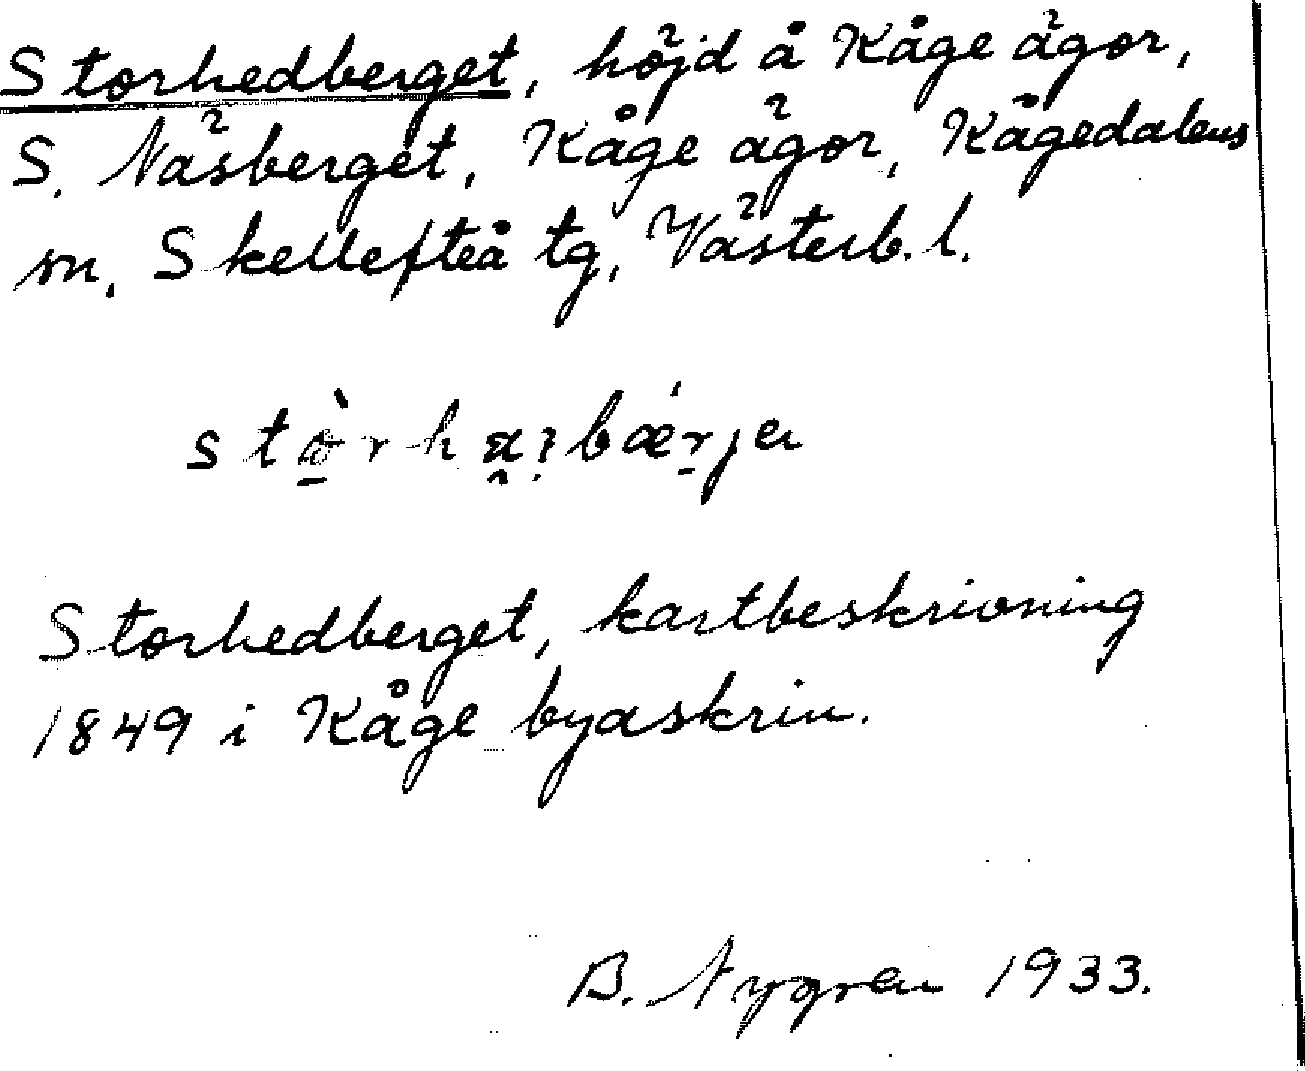 Storhedberget, höjd å Kåge ägor,
S. Näsberget, Kåge ägor, Kågedalens
sn. Skellefteå tg, Västerb. l.
Storhedberget, kartbeskrivning
1849 i Kåge byaskrin.
B. Nygren 1933.